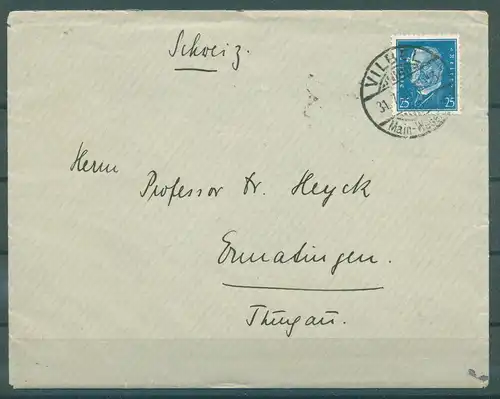 Schweiz.
VILB
31.
Main-Wese
25 25
Herrn
Professor Dr. Heyck
Ermatingen.
Thurgau.